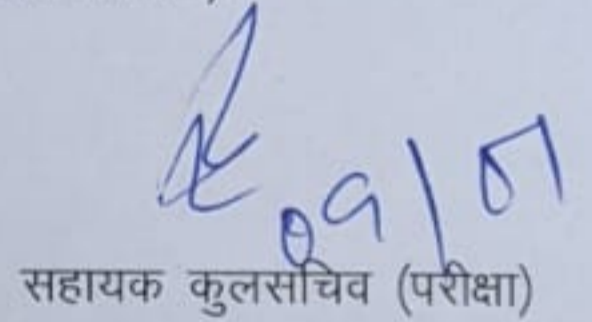 09/01
सहायक कुलसचिव (परीक्षा)